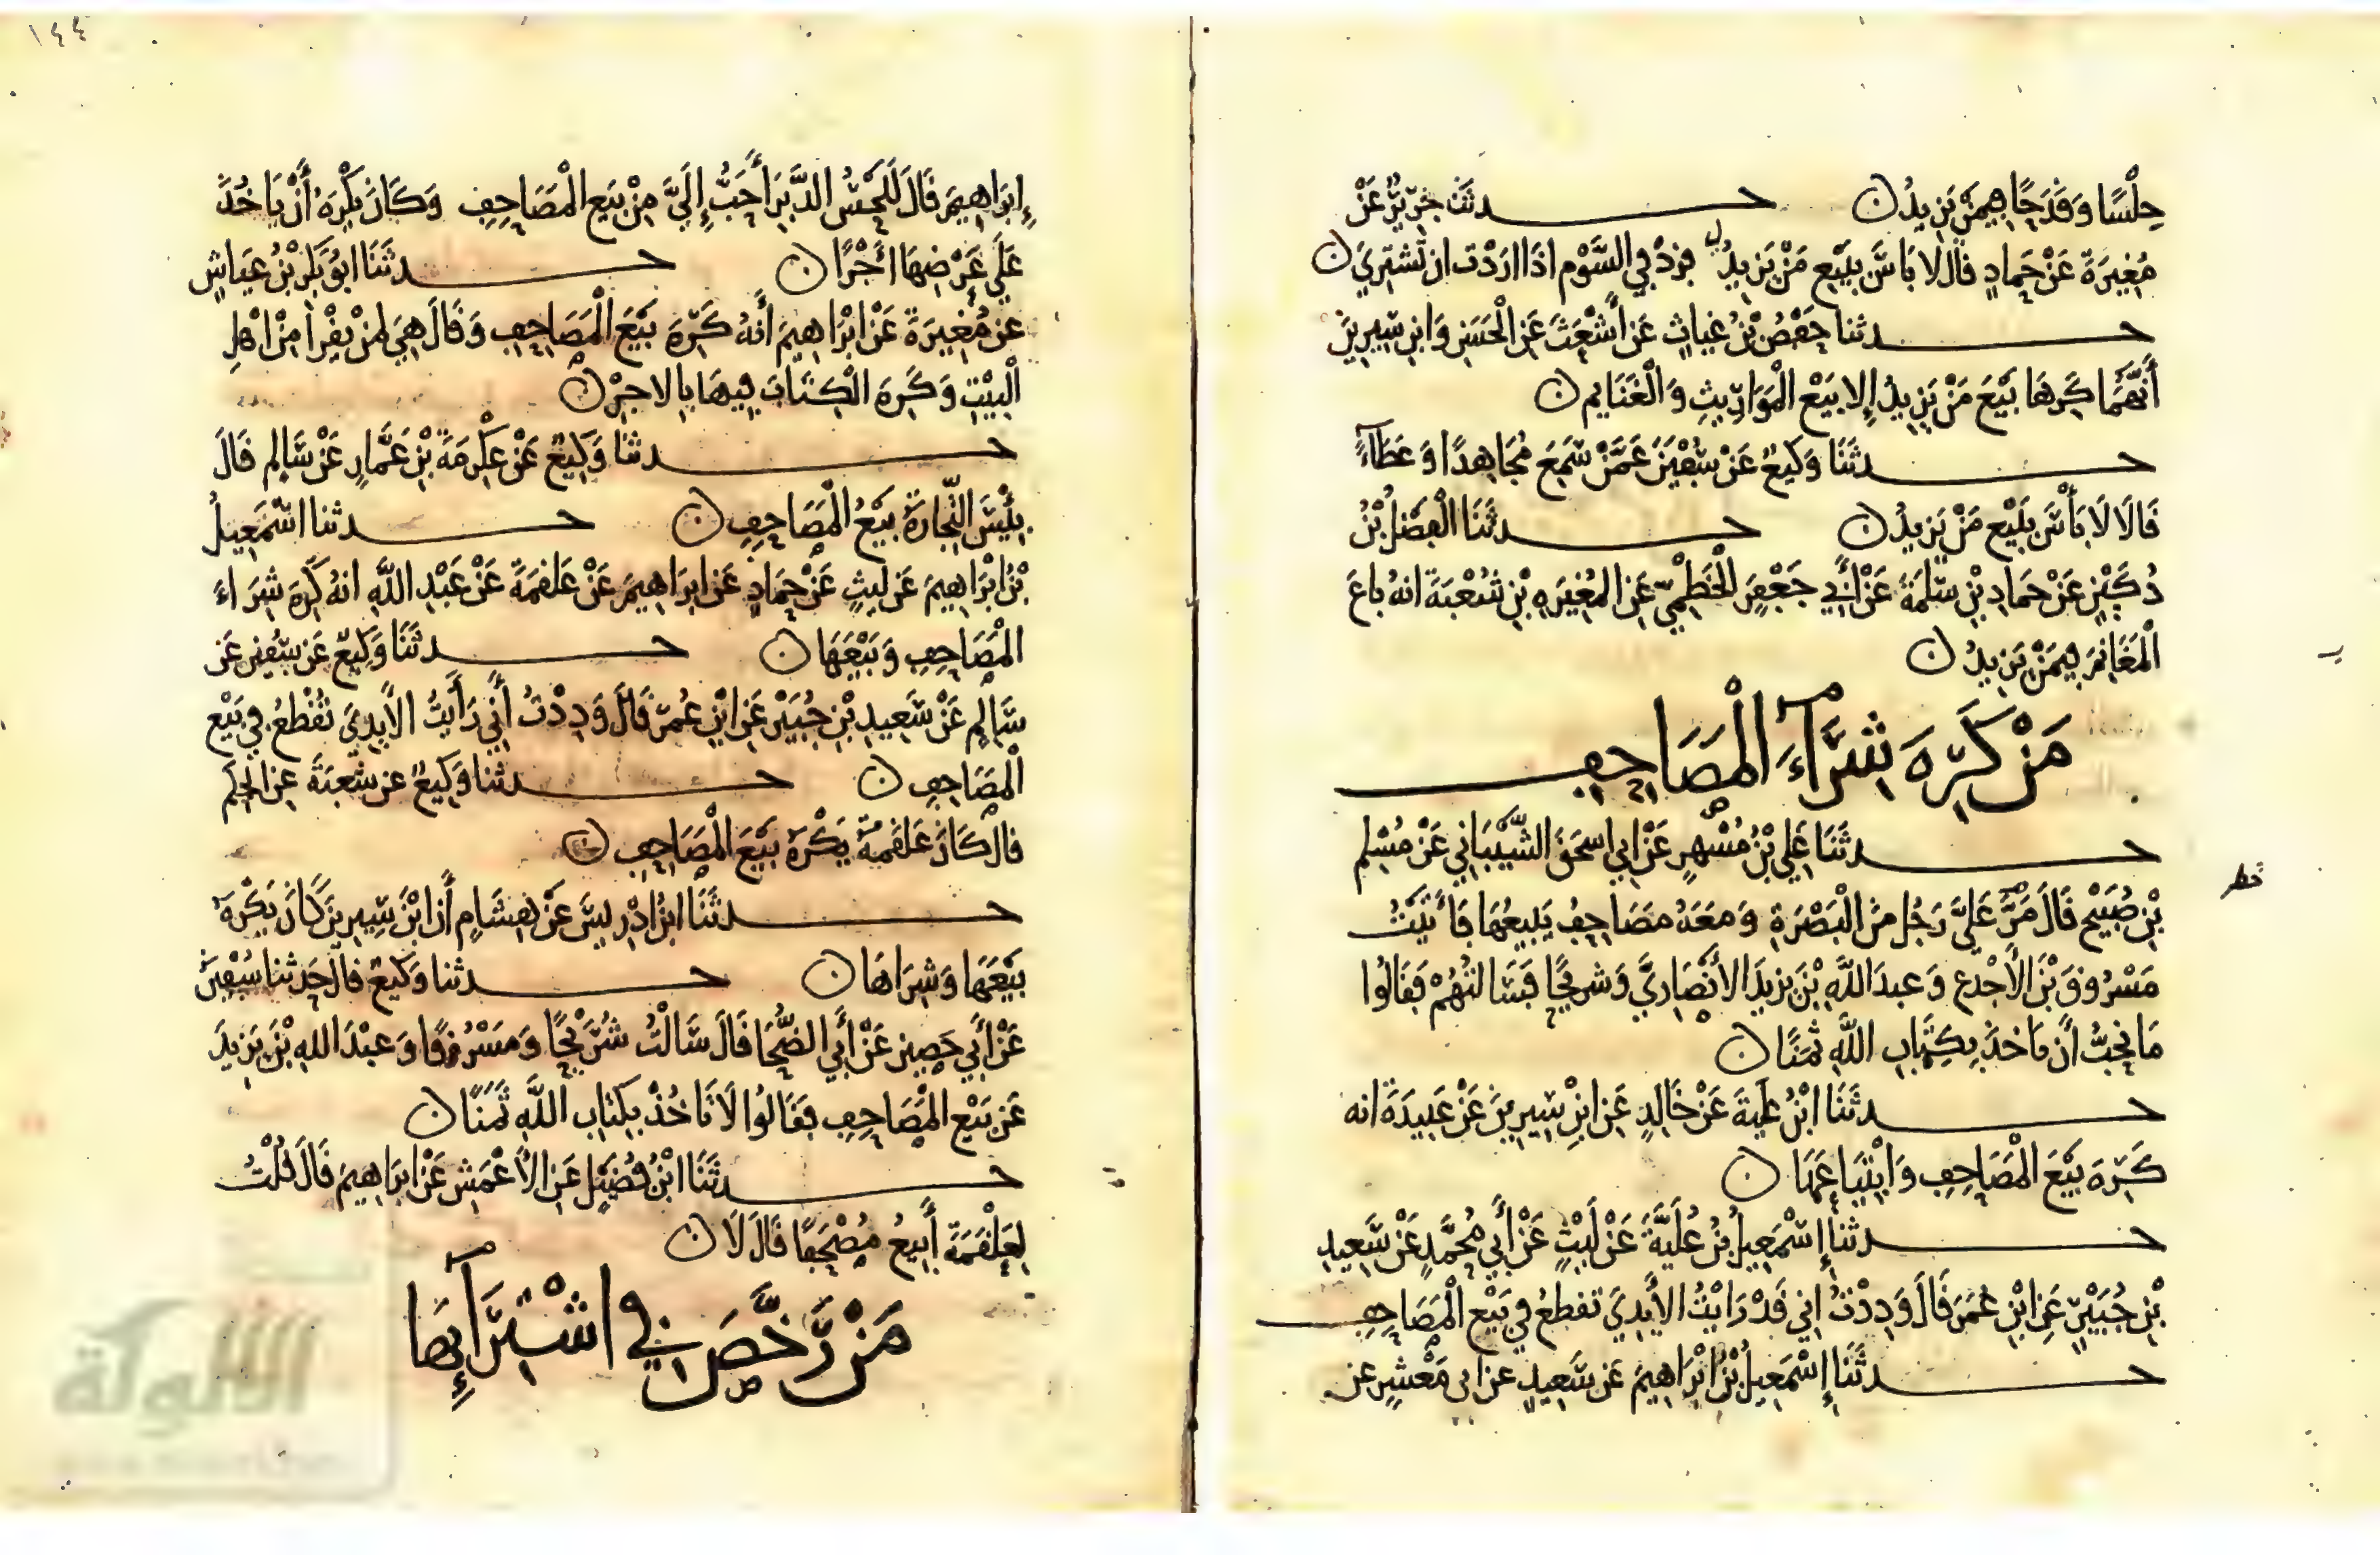 حِلْسًا وَقَدَحًا فِيمَنْ يَزِيدُ ن حدثنا جَرِيرٌ عَنْ
مُغِيرَةَ عَنْ حَمادٍ قال لا بَاسَ بِبَيْعِ مَنْ يَزِيدُ فى السَّوْمِ اذَا ارَدْت ان تَشتَرِيَ ن
حدثنا حَفْصُ بْنُ غِيَاثٍ عَن أَشْعَثَ عَنِ الْحَسَنِ وَابنِ سِيرِينَ
أَنَّهُمَا كَرِهَا بَيْعَ مَنْ يَزِيدُ إلا بَيْعَ الْمَوَارِيثِ وَالْغَنَايِمِ ن
حدثَنَا وَكِيعٌ عَنْ سُفْيَنَ عَمَّنْ سَمِعَ مُجَاهِدًا وَعَطَآءً
قَالَا لَا بَأْسَ بِبَيْعِ مَنْ يَزِيدُ ن حدثَنَا الْفَضْلُ بْنُ
دُكَيْنٍ عَنْ حَمادِ بْنِ سَلَمَةَ عَنْ أَبِي جَعْفَرٍ الْخَطْمِيِّ عَنِ المُغِيرَهِ بْنِ شُعْبَةَ انهُ باعَ
الْمَغَانِمَ فِيمَنْ يَزِيدُ ن
مَنْ كَرِهَ شِرَآءَ الْمَصَاحِفِ
حدثَنَا عَلِي بْنُ مُسْهِرٍ عَنْ ابِي اسحَقَ الشَّيْبَانِي عَنْ مُسْلِمِ
بْنِ صُبَيْحٍ قَالَ مَرَّ عَلَيَّ رَجُل مِنَ الْبَصْرَةِ وَمَعَهُ مَصَاحِفُ يَبِيعُهَا فَأَتَيْتُ
مَسْرُوقَ بْنَ الأَجْدع وَعبدَ اللَّهِ بْنَ يزيدَ الأَنْصَارِيَّ وَشريحًا فَسَالتُهُمْ فَقَالُوا
مَا نُحِبُّ أَنْ نَاخذَ بِكِتَابِ اللَّهِ ثَمَنًا ن
حدثَنَا ابْنُ عُلَيةَ عَنْ خَالِدٍ عَنِ ابْنِ سِيرِينَ عَنْ عَبِيدَةَ انه
كَرِهَ بَيْعَ الْمَصَاحِفِ وَابْتِيَاعَهَا ن
حدثنا إِسْمَعِيلُ بْنُ عُلَيَّةَ عَنْ لَيْثٍ عَنْ أَبِي مُحَمَّدٍ عَنْ سَعِيدِ
بْنِ جُبَيْرٍ عَنِ ابْنِ عُمَرَ قَالَ وَدِدْتُ انِي قَدْ رَايْتُ الأَيْدِيَ تقطعُ فِي بَيْعِ الْمَصَاحِفِ
حدثَنَا إِسْمَعِيلُ بْنُ ابْرَاهِيمَ عَن سَعِيدٍ عن ابى مَعْشِرٍ عن
خط
١٤٤
إِبْرَاهِيمَ قَالَ لَلَحْسُ الدَّبَرِ أَحَبُّ إِلَيَّ مِنْ بَيْعِ الْمَصَاحِفِ وَكَانَ يَكْرَهُ أَنْ يَاخُذَ
عَلَى عَرْضِهَا أَجْرًا ن حدثَنَا ابُو بَكْرِ بْنُ عَيَاشٍ
عن مُغِيرَةَ عَنْ ابْرَاهِيمَ أَنهُ كَرِهَ بَيْعَ الْمَصَاحِفِ وَقَالَ هِيَ لِمَنْ يَقْرَأ مِنْ اهْلِ
الْبَيْتِ وَكَرِهَ الْكِتَابَ فِيهَا بِالاجِرْ ن
حدثنا وَكِيعٌ عَنْ عِكْرِمَةَ بْنِ عَمَّارٍ عَنْ سَالِمٍ قَالَ
بِئْسَ التِّجَارَةُ بَيْعُ الْمَصَاحِفِ ن حدثنا اسْمَعِيلُ
بْنُ ابْرَاهِيمَ عَن لَيْثٍ عَنْ حَمَادٍ عَن ابرَاهِيمَ عَنْ عَلقمَةَ عَنْ عَبْدِ اللَّهِ انهُ كَرِهَ شِرَاءَ
الْمَصَاحِفِ وَبَيْعَهَا ن حدثَنَا وَكِيعٌ عَن سُفْيَنَ عَن
سَالِمٍ عَنْ سَعِيدِ بْنِ جُبَيْرٍ عَنِ ابْنِ عُمَرَ قَالَ وَدِدْتُ أَنِي رَأَيْتُ الأَيْدِيَ تُقْطَعُ فِي بَيْعِ
الْمَصَاحِفِ ن حدثنا وَكِيعٌ عن شعْبَةَ عنِ الحكَم
قال كَانَ عَلقَمَةُ يَكْرَهُ بَيْعَ الْمَصَاحِفِ ن
حدثَنَا ابنُ ادْرِيسَ عَنْ هِشَامٍ أَن ابْنَ سِيرِينَ كَانَ يَكْرَهُ
بَيْعَهَا وَشِرَاهَا ن حدثنا وَكِيعٌ قال حَدثنا سُفْيَنَ
عَنْ أَبِي حَصِينٍ عَنْ أَبِي الضُّحَا قَالَ سَالْتُ شُرَيْحًا وَمَسْرُوقًا وَعَبْدَ اللهِ بْنَ يَزِيدَ
عَن بَيْعِ الْمَصَاحِفِ فَقَالُوا لَا تَاخُذْ بِكتَابِ اللَّهِ ثَمَنًا ن
حدثَنَا ابْنُ فُضَيْلٍ عَنِ الأَعْمَشِ عَنْ ابرَاهِيمَ قَالَ قُلْتُ
لِعَلْقَمَةَ أَبِيعُ مُصْحَفًا قَالَ لَا ن
مَنْ رَخَّصَ فِي اشْتِرَآئِهَا
الألوكة